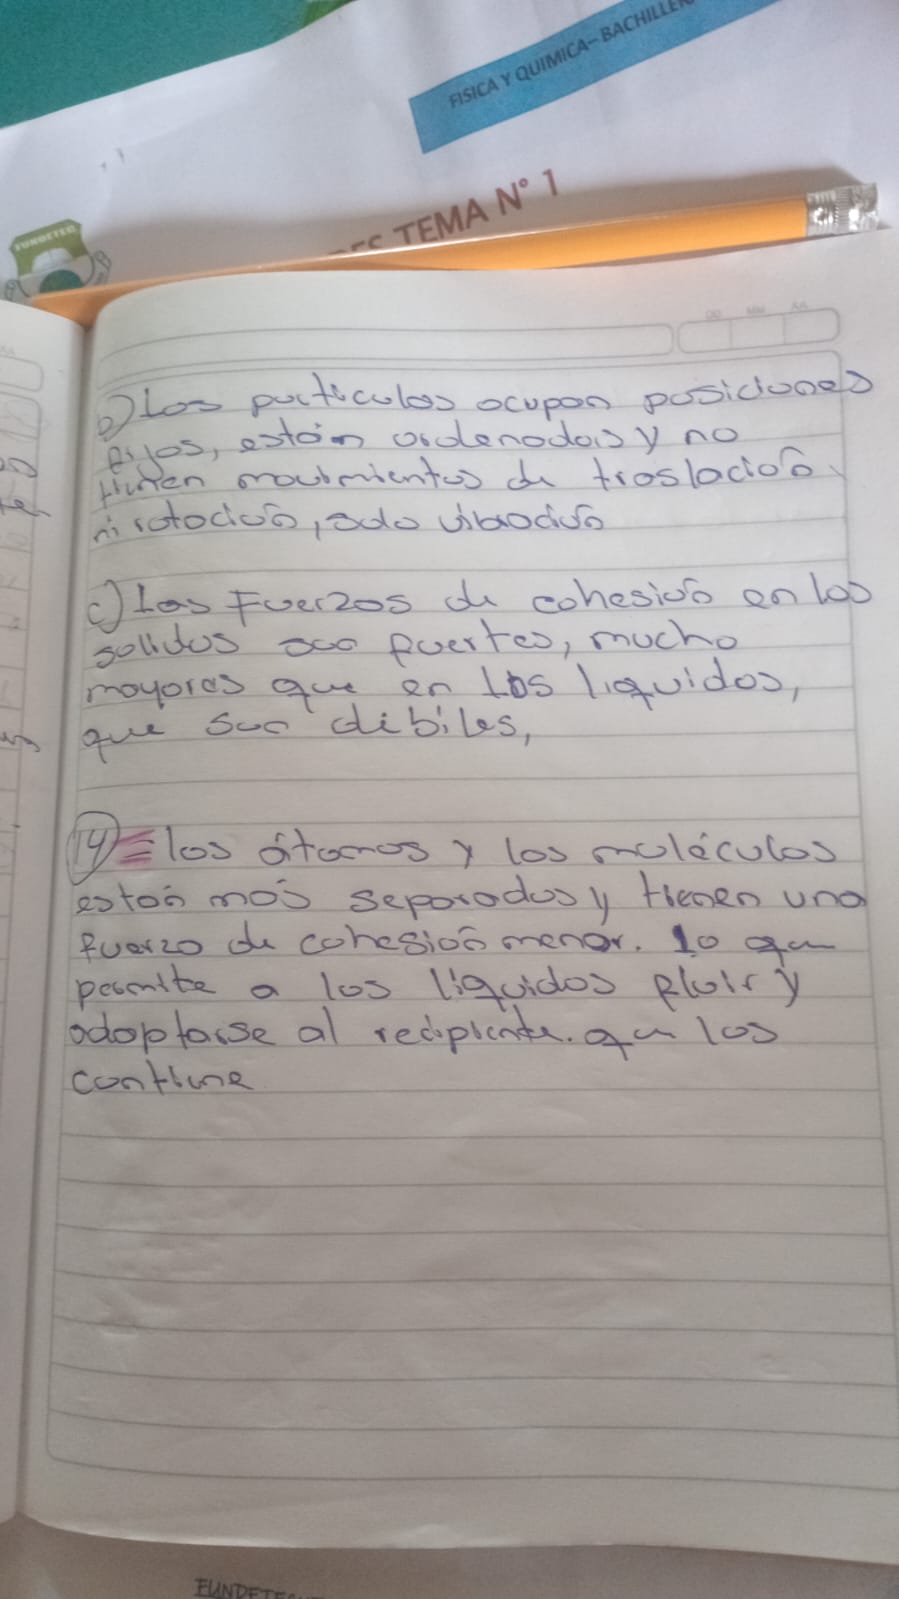 FISICA Y QUIMICA-BACHILLER
TEMA N° 1
FUNDETEC
DD MM AA
b) Las particulas ocupan posiciones
fijas, están ordenadas y no
tienen movimientos de traslación
ni rotación, solo vibración
c) Las Fuerzas de cohesión en los
solidos son fuertes, mucho
mayores que en los liquidos,
que son debiles,
14 = los átomos y las moléculas
están más separados y tienen una
fuerza de cohesión menor. lo que
permite a los líquidos fluir y
adoptarse al recipiente. que los
contiene
FUNDETEC